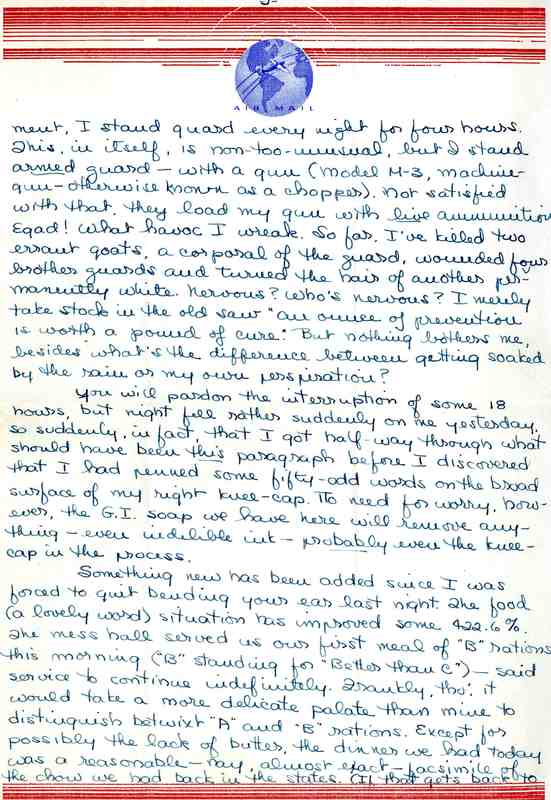 -3-
AIR MAIL
ment, I stand guard every night for four hours.
This, in itself, is non-too-unusual, but I stand
armed guard — with a gun (Model M-3, machine-
gun — otherwise known as a chopper). Not satisfied
with that, they load my gun with live ammunition.
Egad! What havoc I wreak. So far, I've killed two
errant goats, a corporal of the guard, wounded four
brother guards and turned the hair of another per-
manently white. Nervous? Who's nervous? I merely
take stock in the old saw "an ounce of prevention
is worth a pound of cure." But nothing bothers me,
besides what's the difference between getting soaked
by the rain or my own perspiration?
You will pardon the interruption of some 18
hours, but night fell rather suddenly on me yesterday,
so suddenly, in fact, that I got half-way through what
should have been this paragraph before I discovered
that I had penned some fifty-odd words on the broad
surface of my right knee-cap. No need for worry, how-
ever, the G.I. soap we have here will remove any-
thing — even indelible ink — probably even the knee-
cap in the process.
Something new has been added since I was
forced to quit bending your ear last night. The food
(a lovely word) situation has improved some 422.6%.
The mess hall served us our first meal of "B" rations
this morning ("B" standing for "Better than C") — said
service to continue indefinitely. Frankly, tho', it
would take a more delicate palate than mine to
distinguish betwixt "A" and "B" rations. Except for
possibly the lack of butter, the dinner we had today
was a reasonable — nay, almost exact — facsimile of
the chow we had back in the states. (If that gets back to